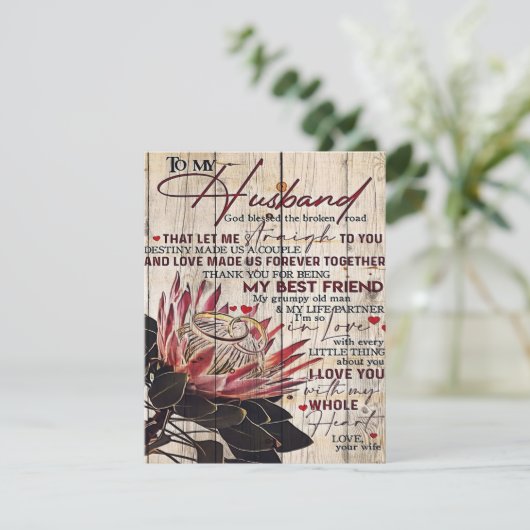 TO MY
Husband
God blessed the broken road
THAT LET ME Straigh TO YOU
DESTINY MADE US A COUPLE
AND LOVE MADE US FOREVER TOGETHER
THANK YOU FOR BEING
MY BEST FRIEND
My grumpy old man
& MY LIFE PARTNER
I'm so
in Love
with every
LITTLE THING
about you
I LOVE YOU
with my
WHOLE
Heart
LOVE,
your wife